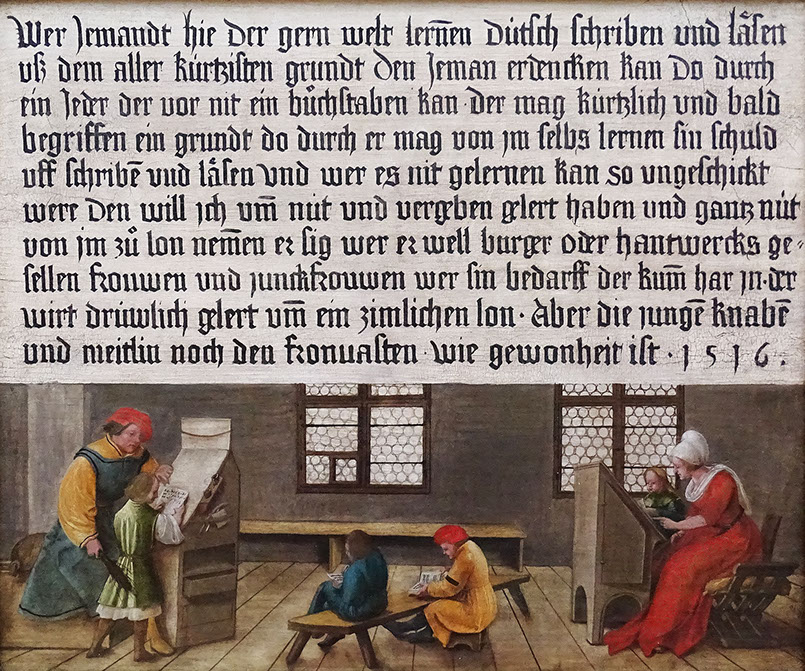 Wer Jemandt hie Der gern welt lernen̄ Dütsch schriben und läsen
uß dem aller kürtzisten grundt Den Jeman erdencken kan Do durch
ein Jeder der vor nit ein bůchstaben kan · der mag kürtzlich und bald
begriffen ein grundt do durch er mag von jm selbs lernen sin schuld
uff schribē vnd läsen Vnd wer es nit gelernen kan so vngeschickt
were Den will jch vm̄ nüt vnd vergeben gelert haben vnd gantz nüt
von jm zů lon nemen̄ er sig wer er well burger oder hantwercks ge-
sellen frouwen vnd junckfrouwen wer sin bedarff der kum̄ har jn · der
wirt drüwlich gelert vm̄ ein zimlichen lon · Aber die jungē knabē
vnd meitlin noch den fronuasten wie gewonheit ist · 1 5 1 6 ·